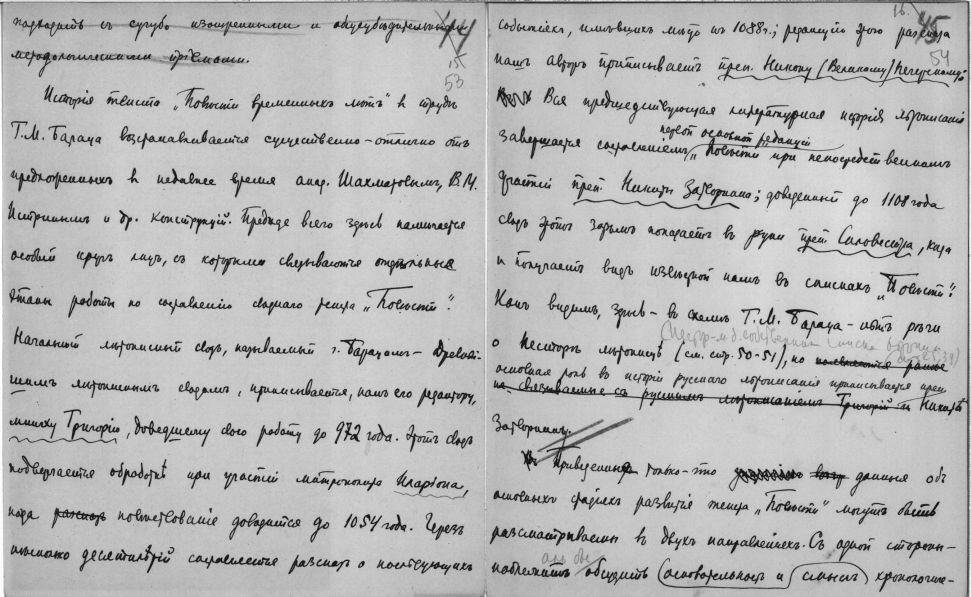 подходить съ сугубо изощренными и
методологическими пріемами.
44
15
53
Исторія текста „Повѣсти временныхъ лѣтъ" въ трудѣ
Г.М. Бараца возстанавливается существенно-отлично отъ
предложенныхъ въ недавнее время акад. Шахматовымъ, В.М.
Истринымъ и др. конструкцій. Прежде всего здѣсь намѣчается
особый кругъ лицъ, съ которыми связываются отдѣльные
этапы работы по составленію своднаго текста „Повѣсти".
Начальный лѣтописный сводъ, называемый г. Барацомъ – древнѣй-
шимъ лѣтописнымъ сводомъ, приписывается, какъ его редактору,
мниху Григорію, доведшему свою работу до 972 года. Этотъ сводъ
подвергается обработкѣ при участіи митрополита Иларіона,
когда разсказ повѣствованіе доводится до 1054 года. Черезъ
нѣсколько десятилѣтій составляется разсказъ о послѣдующихъ
16.
45
54
событіяхъ, имѣвшихъ мѣсто въ 1088 г.; редакцію этого разсказа
нашъ авторъ приписываетъ преп. Никону (Великому) Печерскому.
Вся предшествующая литературная исторія лѣтописанія
первой основной редакціи
завершается составленіемъ „Повѣсти" при непосредственномъ
участіи преп. Никиты Затворника; доведенный до 1108 года
сводъ этотъ затѣмъ попадаетъ въ руки преп. Сильвестра, когда
и получаетъ видъ извѣстной намъ въ спискахъ „Повѣсти".
Какъ видимъ, здѣсь – въ схемѣ Г.М. Бараца – нѣтъ рѣчи
о Несторѣ лѣтописцѣ (см. стр. 50-51), но
основная роль въ исторіи русскаго лѣтописанія приписывается преп.
не связываемые съ русскимъ лѣтописаніемъ Григорій и Никитѣ
Затворнику.
Приведенныя только-что данныя объ
основныхъ фазисахъ развитія текста „Повѣсти" могутъ быть
разсматриваемы въ двухъ направленіяхъ. Съ одной стороны –
надлежитъ обсудить (основательность и смыслъ) хронологиче-